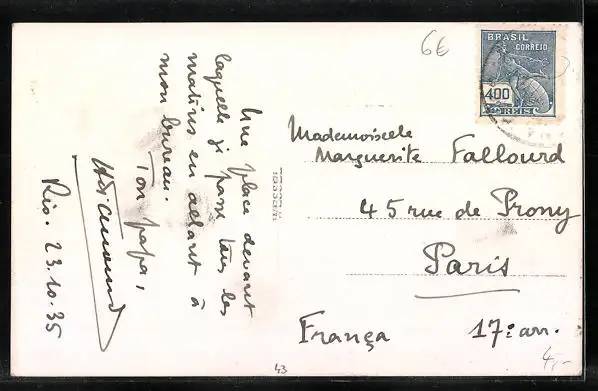 Une place devant
laquelle je passe tous les
matins en allant à
mon bureau.
Ton papa,
Rio. 23.10.35
6€
BRASIL
CORREIO
400
REIS
Mademoiselle
Marguerite Fallourd
45 rue de Prony
Paris
França 17e arr.
4,-
43